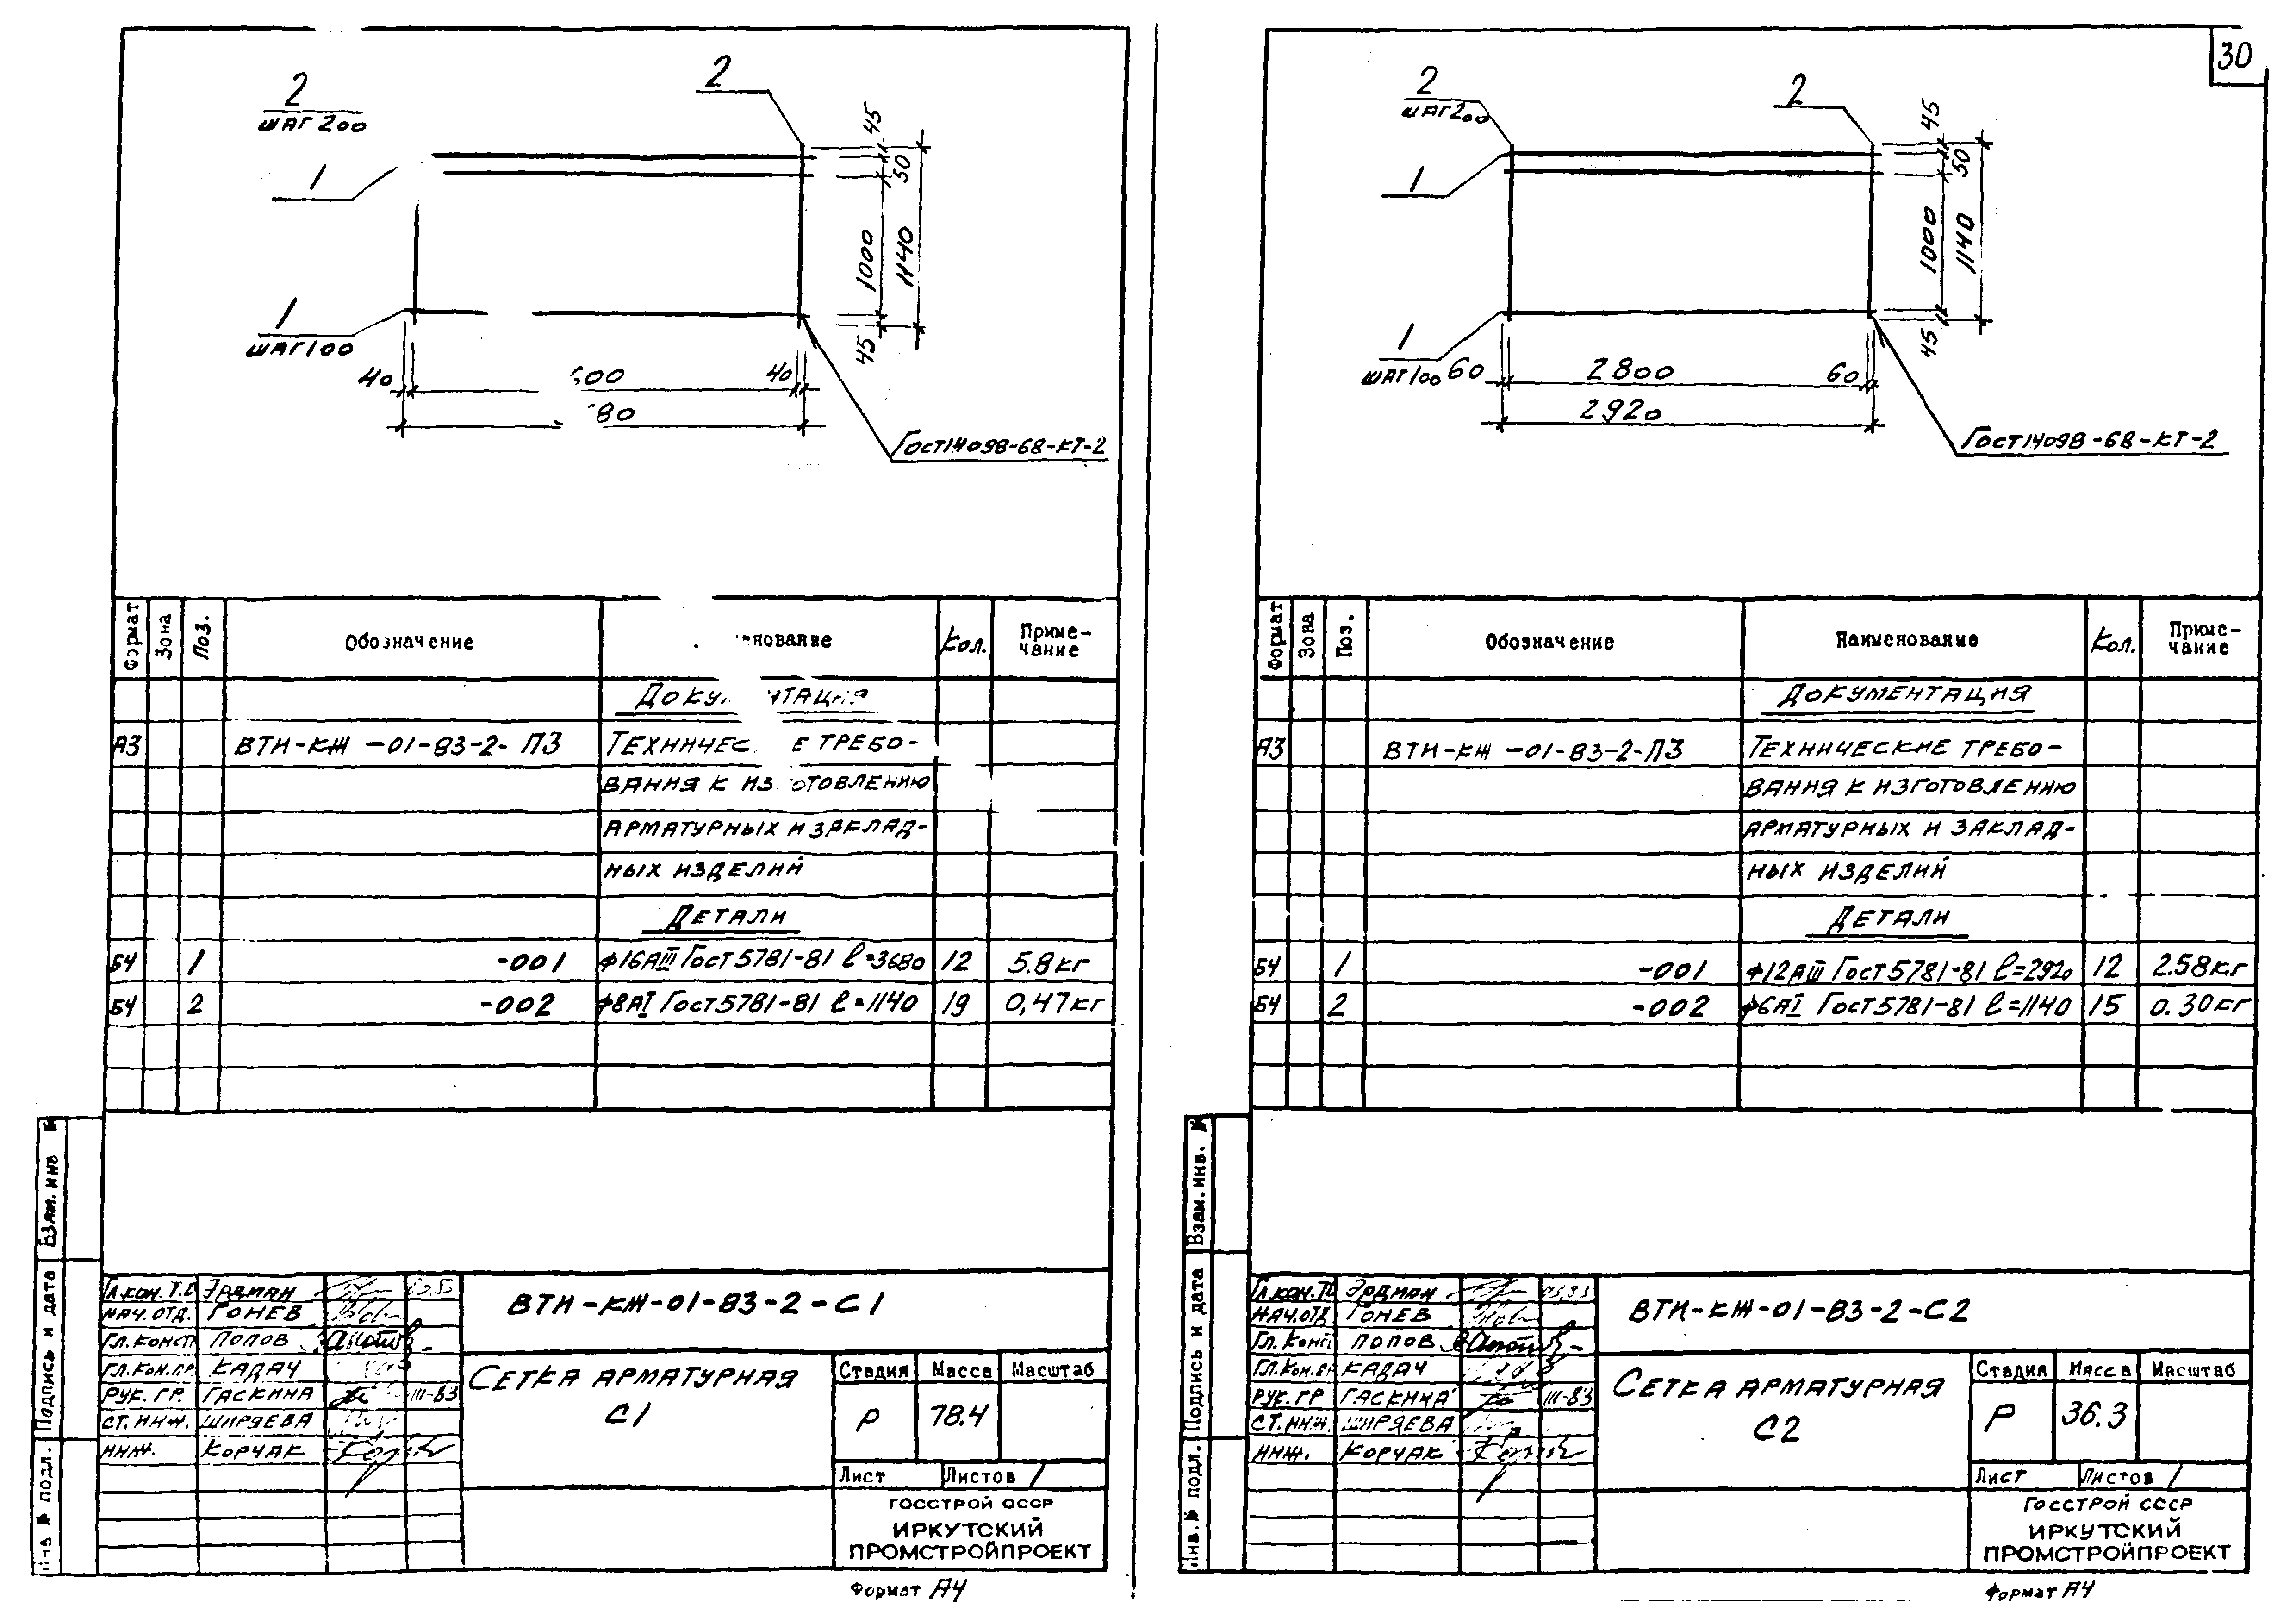 2
ШАГ 200
1
1
ШАГ 100
2
45
50
1000
1140
45
40
600
40
80
ГОСТ 14098-68-КТ-2
Формат
Зона
Поз.
Обозначение
нование
Кол.
Приме-
чание
ДОКУ НТАЦИЯ
А3 ВТИ-КЖ-01-83-2-ПЗ ТЕХНИЧЕС Е ТРЕБО-
ВАНИЯ К ИЗ ОТОВЛЕНИЮ
АРМАТУРНЫХ И ЗАКЛАД-
НЫХ ИЗДЕЛИЙ
ДЕТАЛИ
Б4 1 -001 ф16АIII ГОСТ 5781-81 ℓ=3680 12 5.8кг
Б4 2 -002 ф8АI ГОСТ 5781-81 ℓ=1140 19 0,47кг
Взам. инв №
Подпись и дата
Инв № подл.
Гл.кон.Т.О ЭРДМАН 03.83
НАЧ.ОТД. ГОНЕВ
ГЛ.КОНСТ ПОПОВ
ГЛ.КОН.ПР КАДАЧ
РУК. ГР. ГАСКИНА III-83
СТ.ИНЖ. ШИРЯЕВА
ИНЖ. КОРЧАК
ВТИ-КЖ-01-83-2-С1
СЕТКА АРМАТУРНАЯ
С1
Стадия Масса Масштаб
Р 78.4
Лист Листов 1
ГОССТРОЙ СССР
ИРКУТСКИЙ
ПРОМСТРОЙПРОЕКТ
Формат А4
30
2
ШАГ 200
1
1
ШАГ 100
2
45
50
1000
1140
45
60
2800
60
2920
ГОСТ 14098-68-КТ-2
Формат
Зона
Поз.
Обозначение
Наименование
Кол.
Приме-
чание
ДОКУМЕНТАЦИЯ
А3 ВТИ-КЖ-01-83-2-ПЗ ТЕХНИЧЕСКИЕ ТРЕБО-
ВАНИЯ К ИЗГОТОВЛЕНИЮ
АРМАТУРНЫХ И ЗАКЛАД-
НЫХ ИЗДЕЛИЙ
ДЕТАЛИ
Б4 1 -001 ф12АIII ГОСТ 5781-81 ℓ=2920 12 2.58кг
Б4 2 -002 ф6АI ГОСТ 5781-81 ℓ=1140 15 0.30кг
Взам. инв. №
Подпись и дата
Инв. № подл.
Гл.кон.ТО ЭРДМАН 03.83
НАЧ.ОТД ГОНЕВ
ГЛ.КОНСТ ПОПОВ
ГЛ.КОН.ПР КАДАЧ
РУК. ГР ГАСКИНА III-83
СТ.ИНЖ. ШИРЯЕВА
ИНЖ. КОРЧАК
ВТИ-КЖ-01-83-2-С2
СЕТКА АРМАТУРНАЯ
С2
Стадия Масса Масштаб
Р 36.3
Лист Листов 1
ГОССТРОЙ СССР
ИРКУТСКИЙ
ПРОМСТРОЙПРОЕКТ
Формат А4